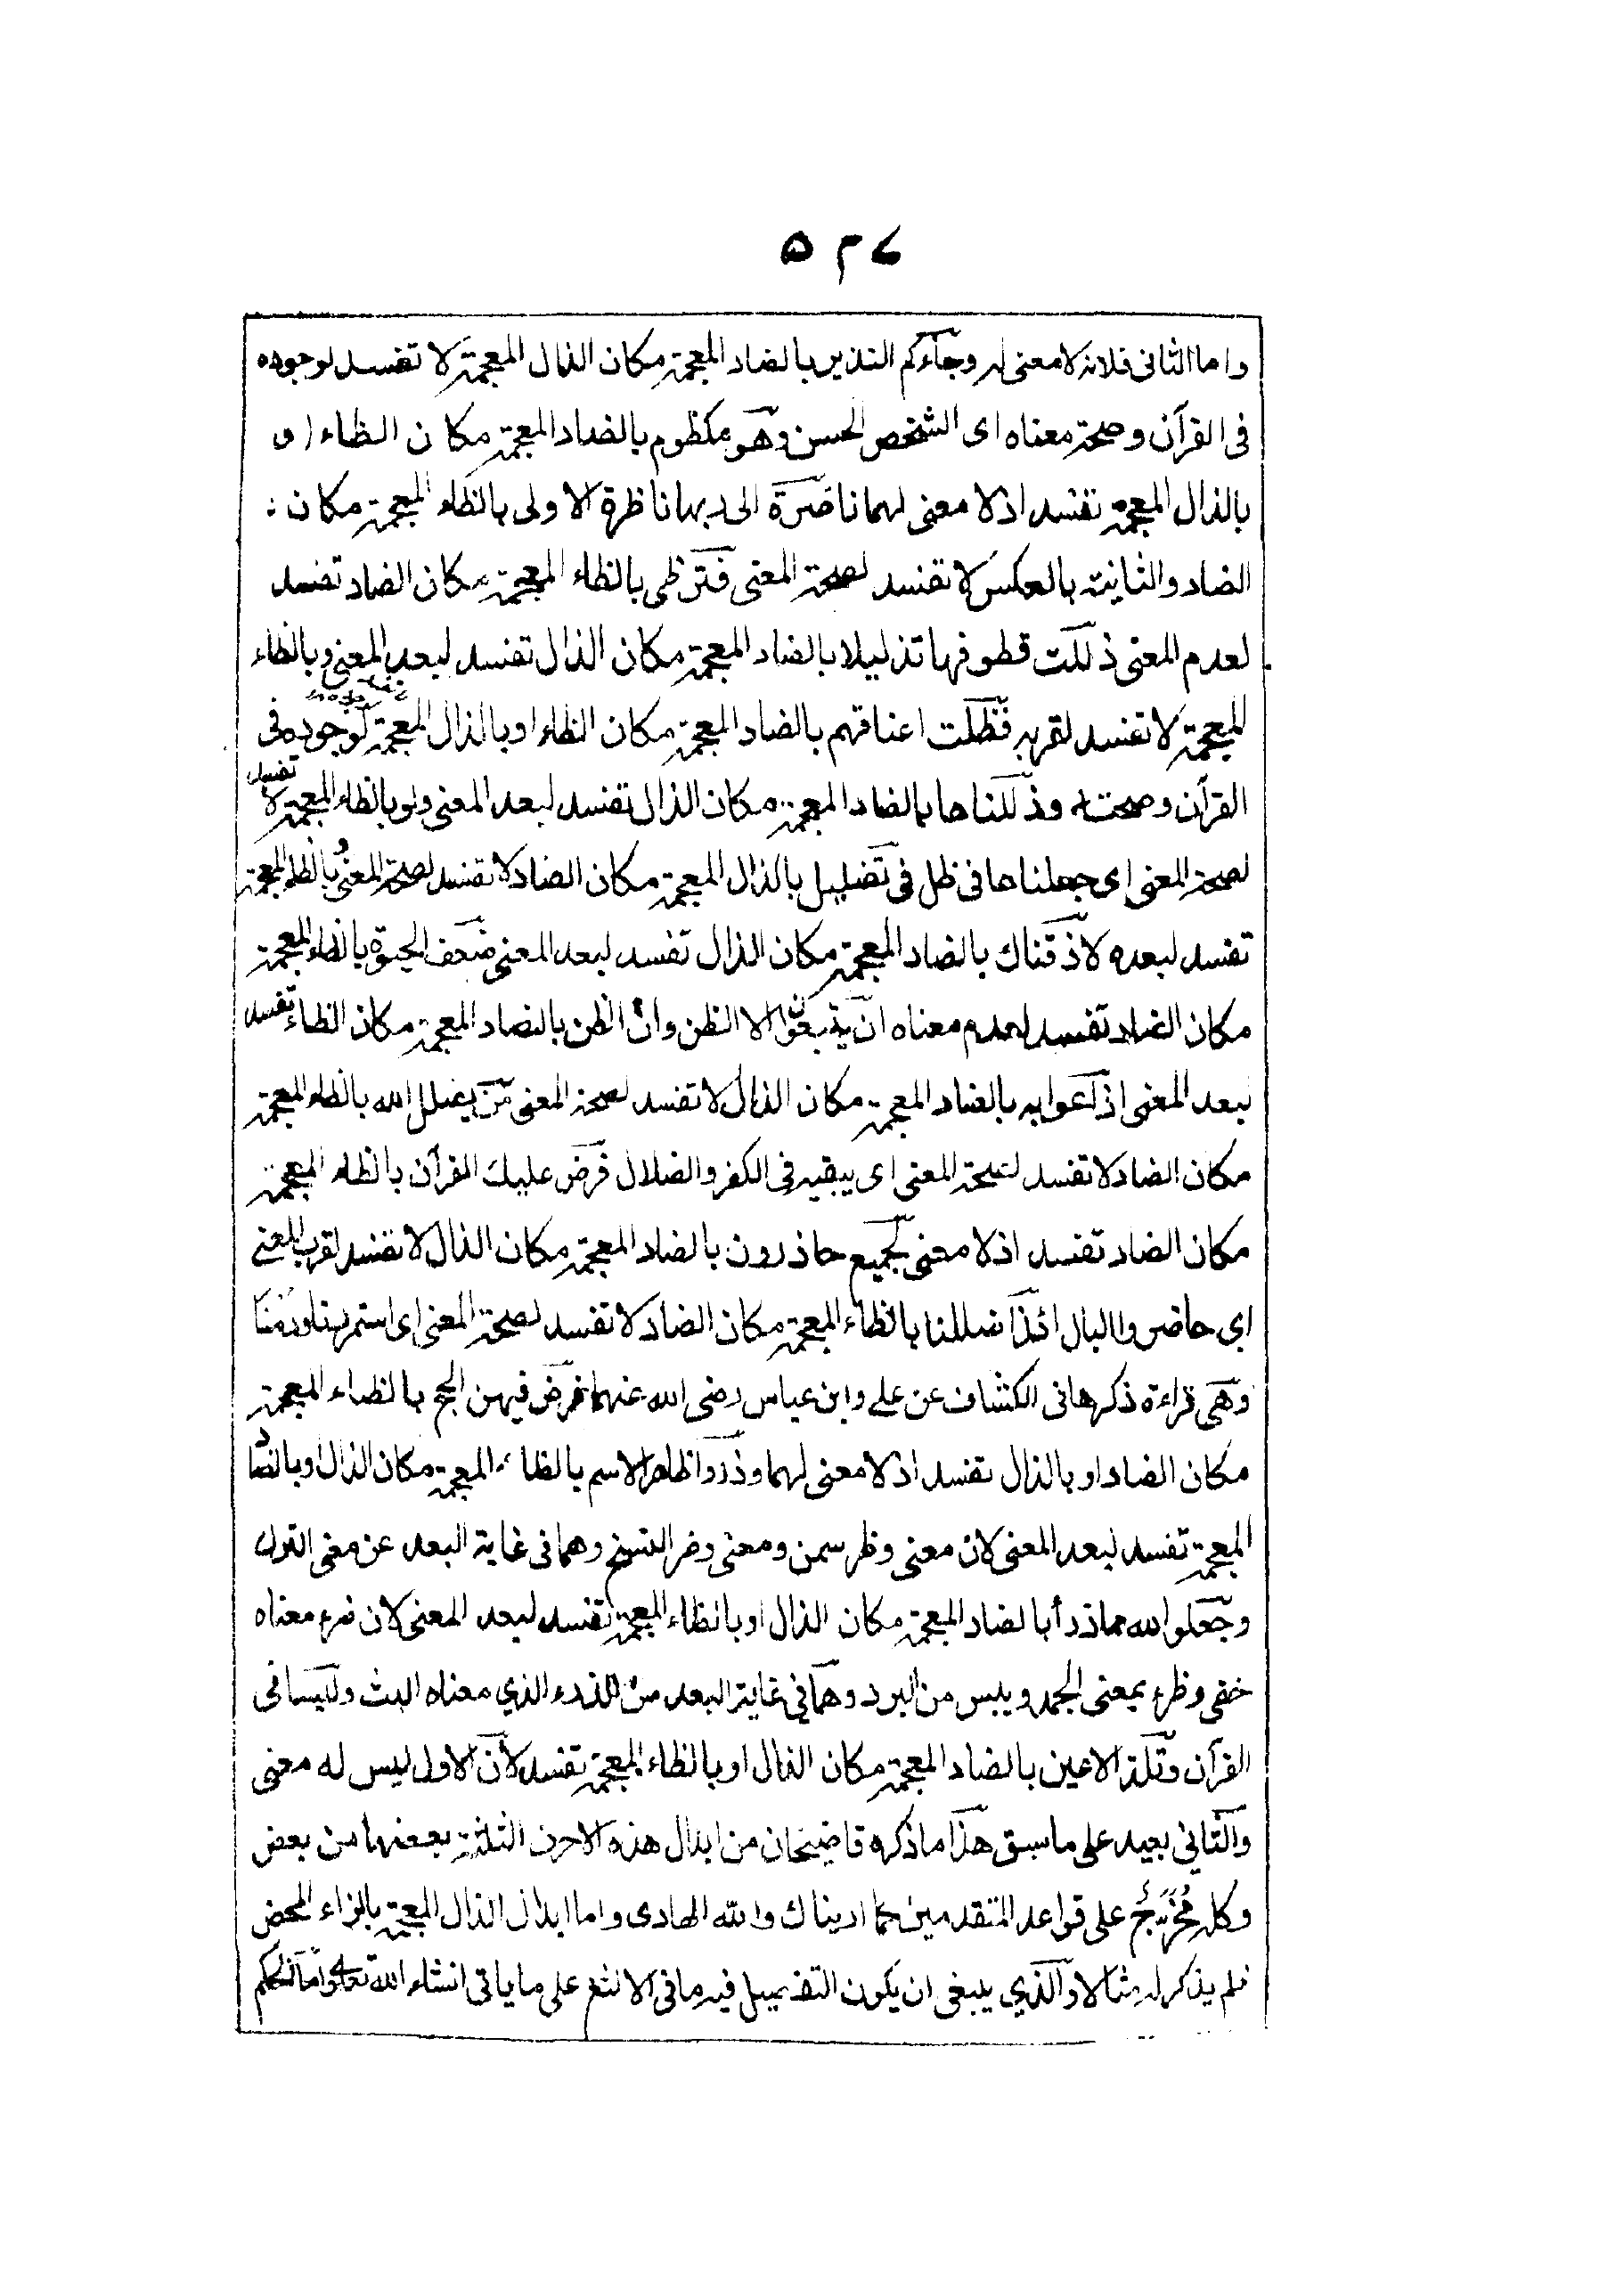 ۵۲۶
واما الثانى فلانہ لا معنى لہ وجآءكم النذير بالضاد المعجمۃ مكان الذال المعجمۃ لا تفسد لوجوده
فى القرآن وصحۃ معناه اى الشخص الحسن وهو مكظوم بالضاد المعجمۃ مكان الظاء او
بالذال المعجمۃ تفسد اذ لا معنى لهما ناضرة الى ربها ناظرة الاولى بالظاء المعجمۃ مكان
الضاد والثانيۃ بالعكس لا تفسد لصحۃ المعنى فترظى بالظاء المعجمۃ مكان الضاد تفسد
لعدم المعنى ذللت قطوفها تذليلا بالضاد المعجمۃ مكان الذال تفسد لبعد المعنى وبالظاء
المعجمۃ لا تفسد لقربہ فظلت اعناقهم بالضاد المعجمۃ مكان الظاء او بالذال المعجمۃ لوجوده فى
القرآن وصحتہ وذللناها بالضاد المعجمۃ مكان الذال تفسد لبعد المعنى ولو بالظاء المعجمۃ لا تفسد
لصحۃ المعنى اى جعلناها فى ظل فى تضليل بالذال المعجمۃ مكان الضاد لا تفسد لصحۃ المعنى و بالظاء المعجمۃ
تفسد لبعده لاذقناك بالضاد المعجمۃ مكان الذال تفسد لبعد المعنى ضعف الحيوة بالظاء المعجمۃ
مكان الضاد تفسد لعدم معناه ان يتبعون الا الظن وان الظن بالضاد المعجمۃ مكان الظاء تفسد
لبعد المعنى اذاعوا بہ بالضاد المعجمۃ مكان الذال لا تفسد لصحۃ المعنى من يضلل الله بالظاء المعجمۃ
مكان الضاد لا تفسد لصحۃ المعنى اى يبقيہ فى الكفر والضلال فرض عليك القرآن بالظاء المعجمۃ
مكان الضاد تفسد اذ لا معنى لجميع حاذرون بالضاد المعجمۃ مكان الذال لا تفسد لقرب المعنى
اى حاضروا البال ائذا ضللنا بالظاء المعجمۃ مكان الضاد لا تفسد لصحۃ المعنى اى استمر بنا ودمنا
وهى قراءة ذكرها فى الكشاف عن على وابن عباس رضى الله عنهما فرض فيهن الحج بالظاء المعجمۃ
مكان الضاد او بالذال تفسد اذ لا معنى لهما وذروا ظاهر الاسم بالظاء المعجمۃ مكان الذال او بالضاد
المعجمۃ تفسد لبعد المعنى لان معنى وظر سمن ومعنى وضر التسخ وهما فى غايۃ البعد عن معنى الترك
وجعلوا لله مما ذرأ بالضاد المعجمۃ مكان الذال او بالظاء المعجمۃ تفسد لبعد المعنى لان ضرء معناه
خفى وظرء بمعنى الجمد ويبس من البرد وهما فى غايۃ البعد من الذرء الذي معناه البث وليسا فى
القرآن وتلذ الاعين بالضاد المعجمۃ مكان الذال او بالظاء المعجمۃ تفسد لأن الاول ليس له معنى
والثاني بعيد على ما سبق هذا ما ذكره قاضيخان من ابدال هذه الاحرف الثلثۃ بعضها من بعض
وكلہ مُخَرَّجٌ على قواعد المتقدمين كما اريناك والله الهادى واما ابدال الذال المعجمۃ بالزاء المحض
فلم يذكر لہ مثالا والذي ينبغى ان يكون التفصيل فيہ ما فى الالثغ على ما ياتى انشاء الله تعالى واما الحكم